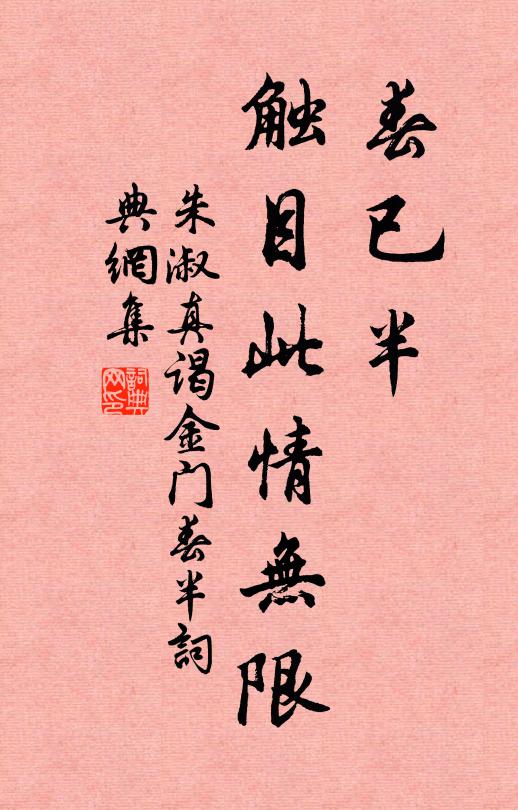 春已半
触目此情無限
朱淑真谒金门春半詞
典網集
詞典网印